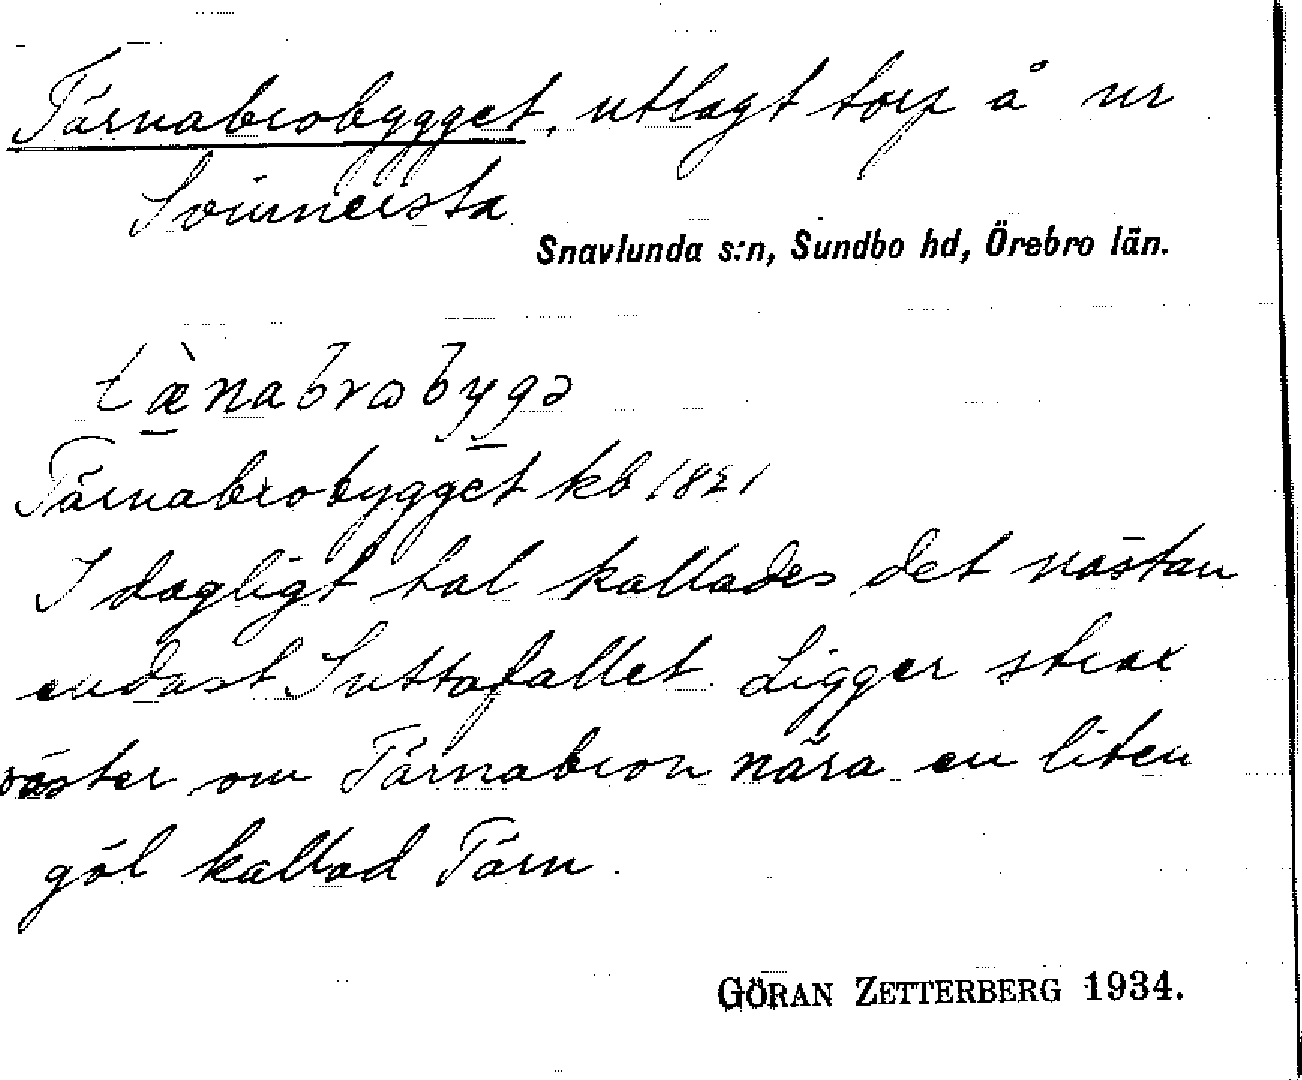 Tärnabrobygget, utlagt torp å nr
Svinnersta
Snavlunda s:n, Sundbo hd, Örebro län.
tæ̀nabrobygə
Tärnabrobygget kb 1821
I dagligt tal kallades det nästan
endast Suttofallet. Ligger strax
väster om Tärnabron nära en liten
göl kallad Tärn.
GÖRAN ZETTERBERG 1934.